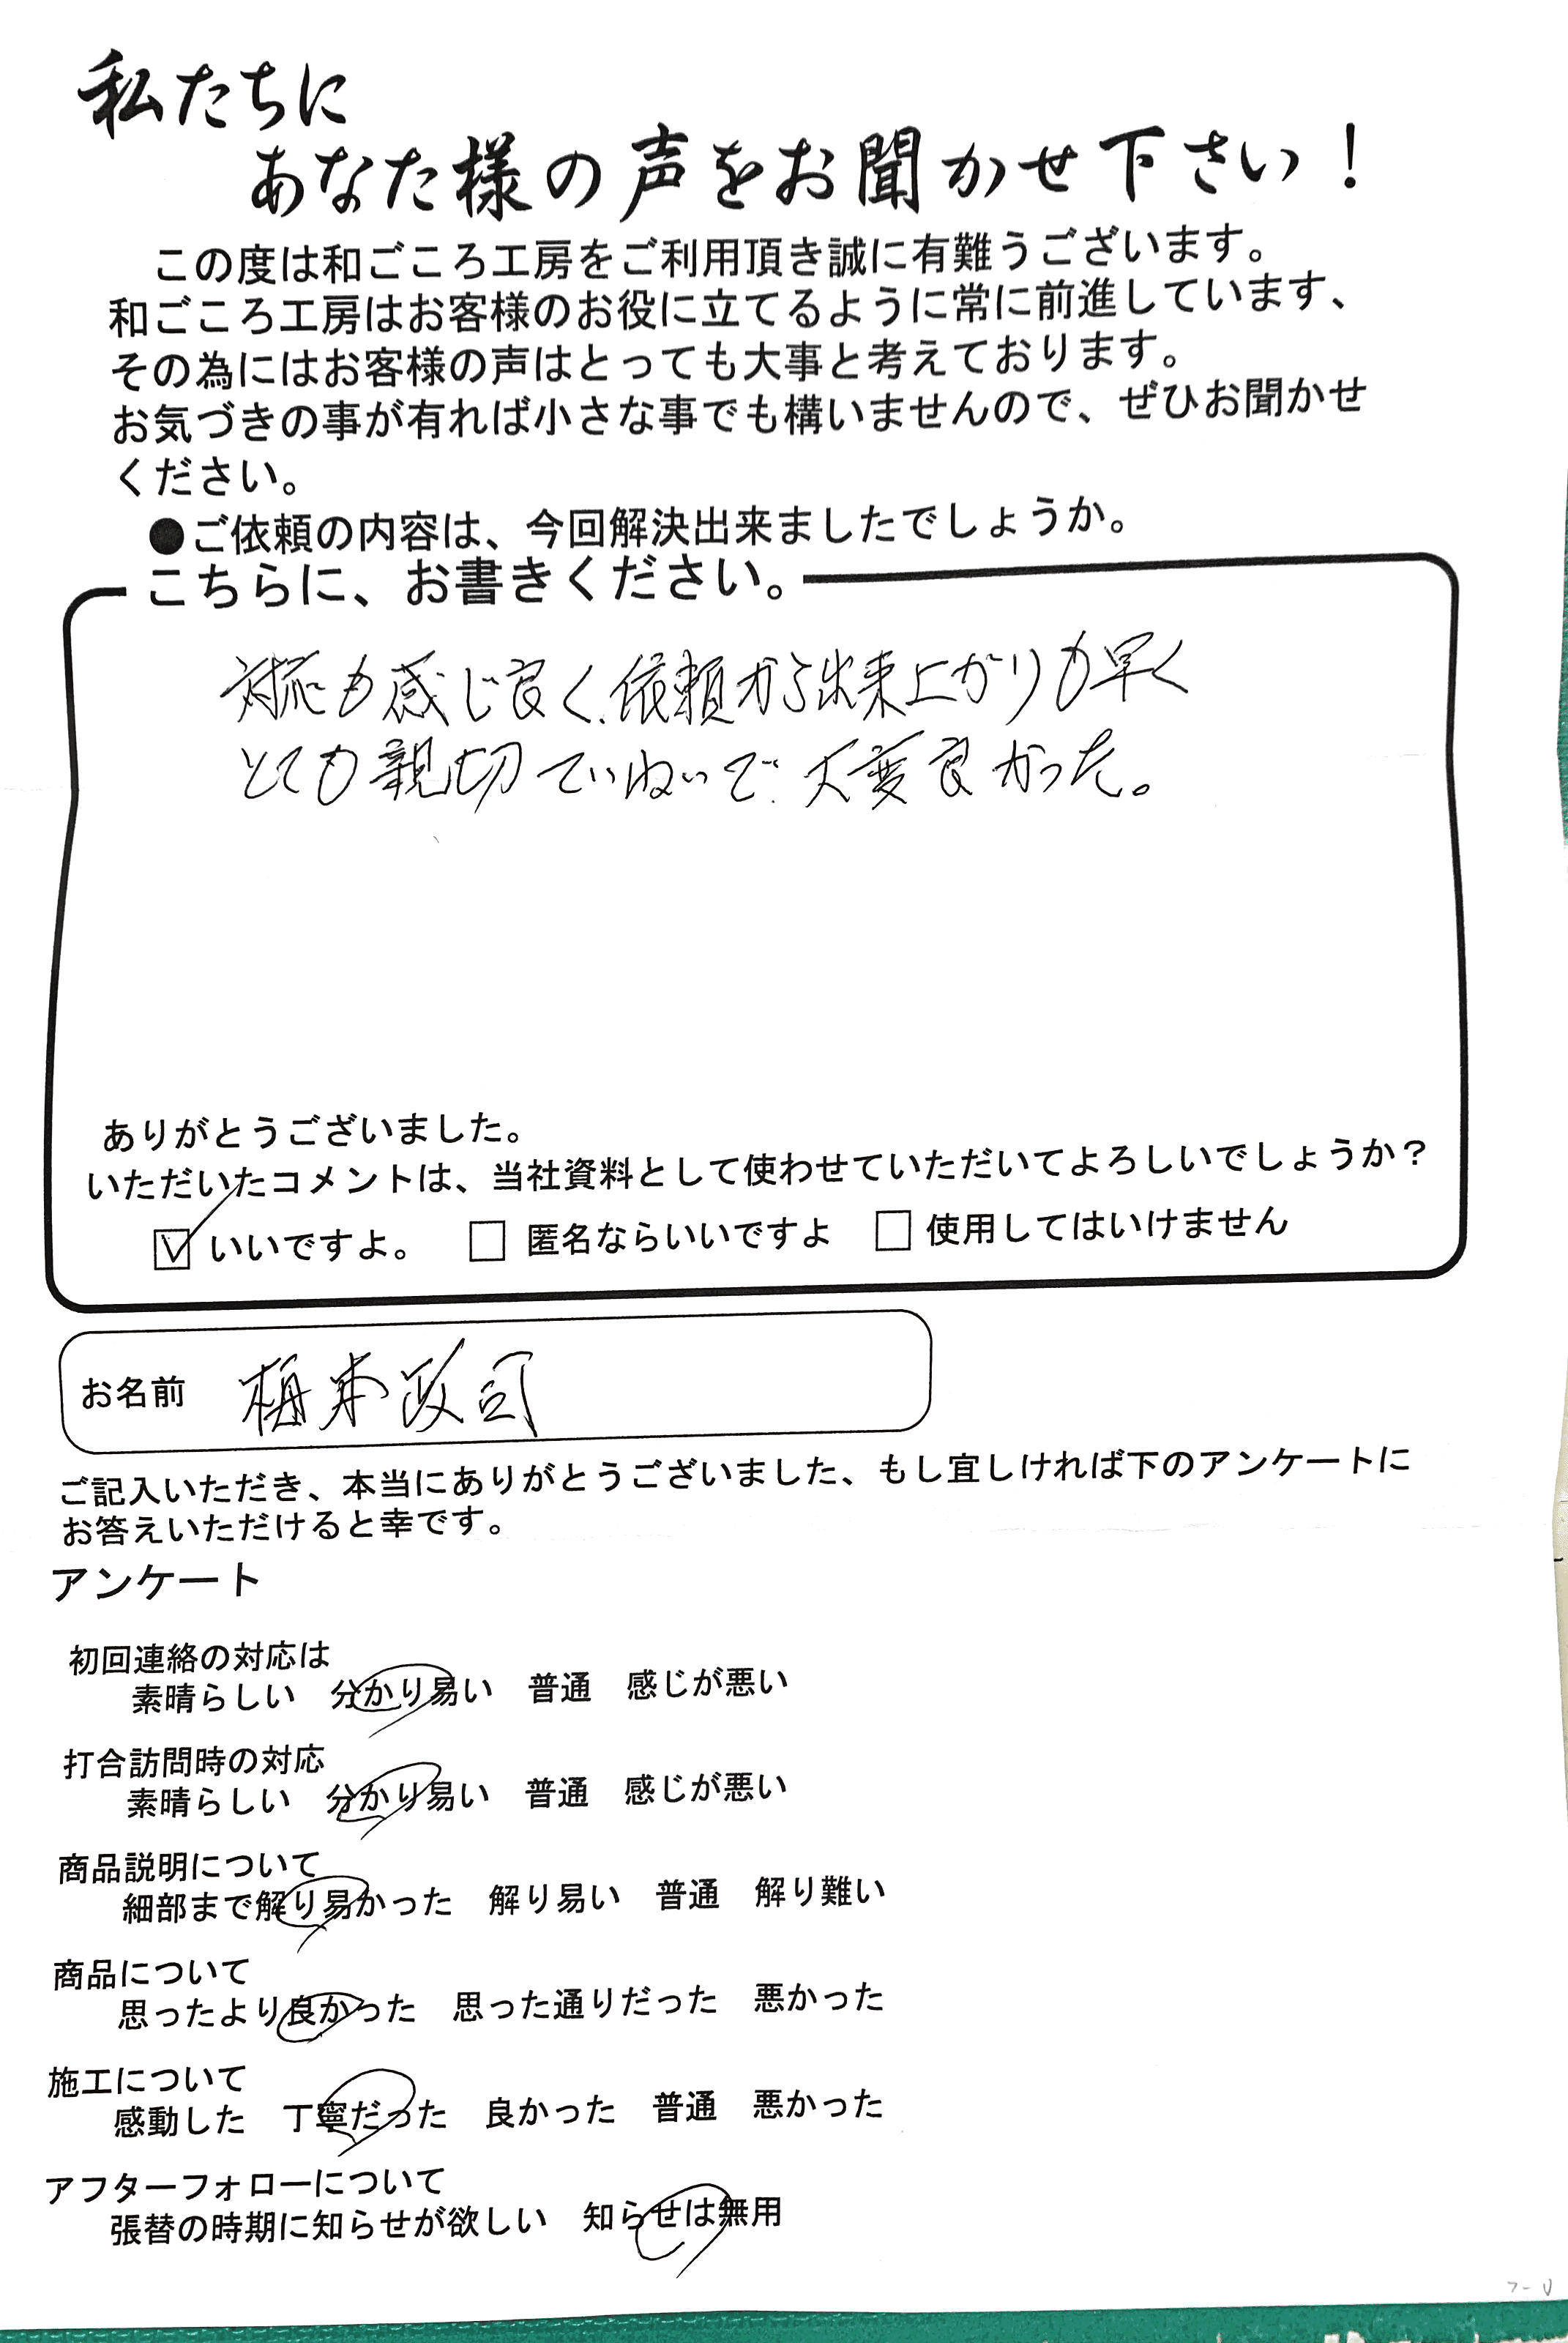 私たちに
あなた様の声をお聞かせ下さい！
この度は和ごころ工房をご利用頂き誠に有難うございます。
和ごころ工房はお客様のお役に立てるように常に前進しています、
その為にはお客様の声はとっても大事と考えております。
お気づきの事が有れば小さな事でも構いませんので、ぜひお聞かせ
ください。
●ご依頼の内容は、今回解決出来ましたでしょうか。
こちらに、お書きください。
対応も感じ良く、依頼から出来上がりも早く
とても親切ていねいで大変良かった。
ありがとうございました。
いただいたコメントは、当社資料として使わせていただいてよろしいでしょうか？
☑ いいですよ。 □ 匿名ならいいですよ □ 使用してはいけません
お名前 梅本政司
ご記入いただき、本当にありがとうございました、もし宜しければ下のアンケートに
お答えいただけると幸です。
アンケート
初回連絡の対応は
素晴らしい 分かり易い 普通 感じが悪い
打合訪問時の対応
素晴らしい 分かり易い 普通 感じが悪い
商品説明について
細部まで解り易かった 解り易い 普通 解り難い
商品について
思ったより良かった 思った通りだった 悪かった
施工について
感動した 丁寧だった 良かった 普通 悪かった
アフターフォローについて
張替の時期に知らせが欲しい 知らせは無用